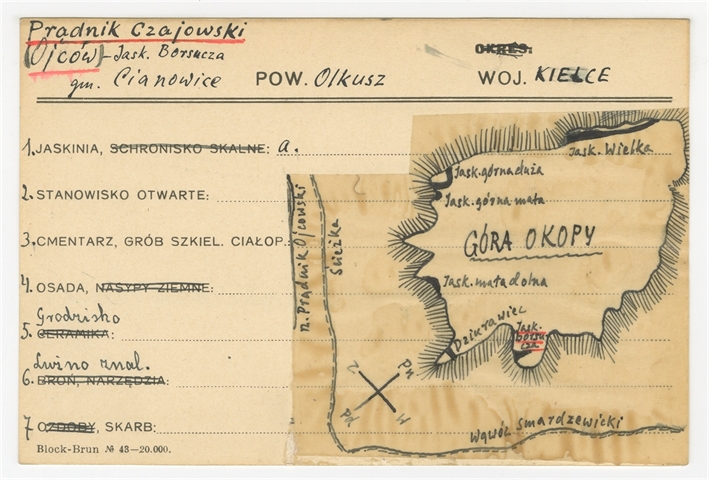 Prądnik Czajowski
(Ojców) - Jask. Borsucza
OKRES:
gm. Cianowice POW. Olkusz WOJ. KIELCE
1. JASKINIA, SCHRONISKO SKALNE: a.
2. STANOWISKO OTWARTE:
3. CMENTARZ, GRÓB SZKIEL. CIAŁOP.:
4. OSADA, NASYPY ZIEMNE:
Grodzisko
5. CERAMIKA:
Luźno znal.
6. BROŃ, NARZĘDZIA:
7 OZDOBY, SKARB:
Block-Brun № 43-20.000.
rz. Prądnik Ojcowski
Ścieżka
Jask. Wielka
Jask. górna duża
Jask. górna mała
GÓRA OKOPY
Jask. mała dolna
Dziurawiec
Jask.
borsu-
cza
Z
Pn
Pd
W
Wąwóz Smardzewicki